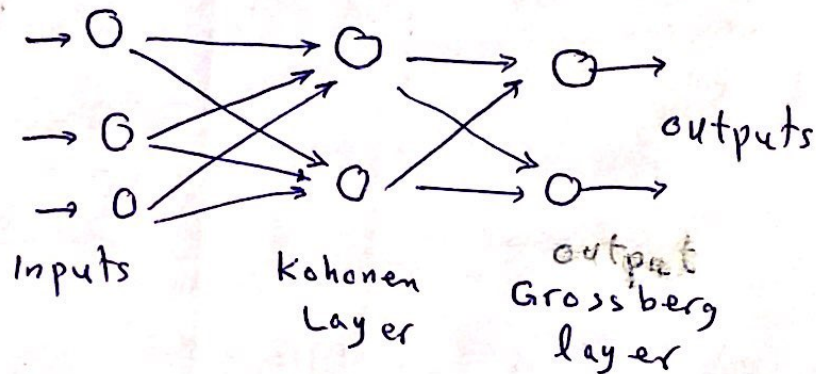 outputs
Inputs
Kohonen
Layer
output
Grossberg
layer